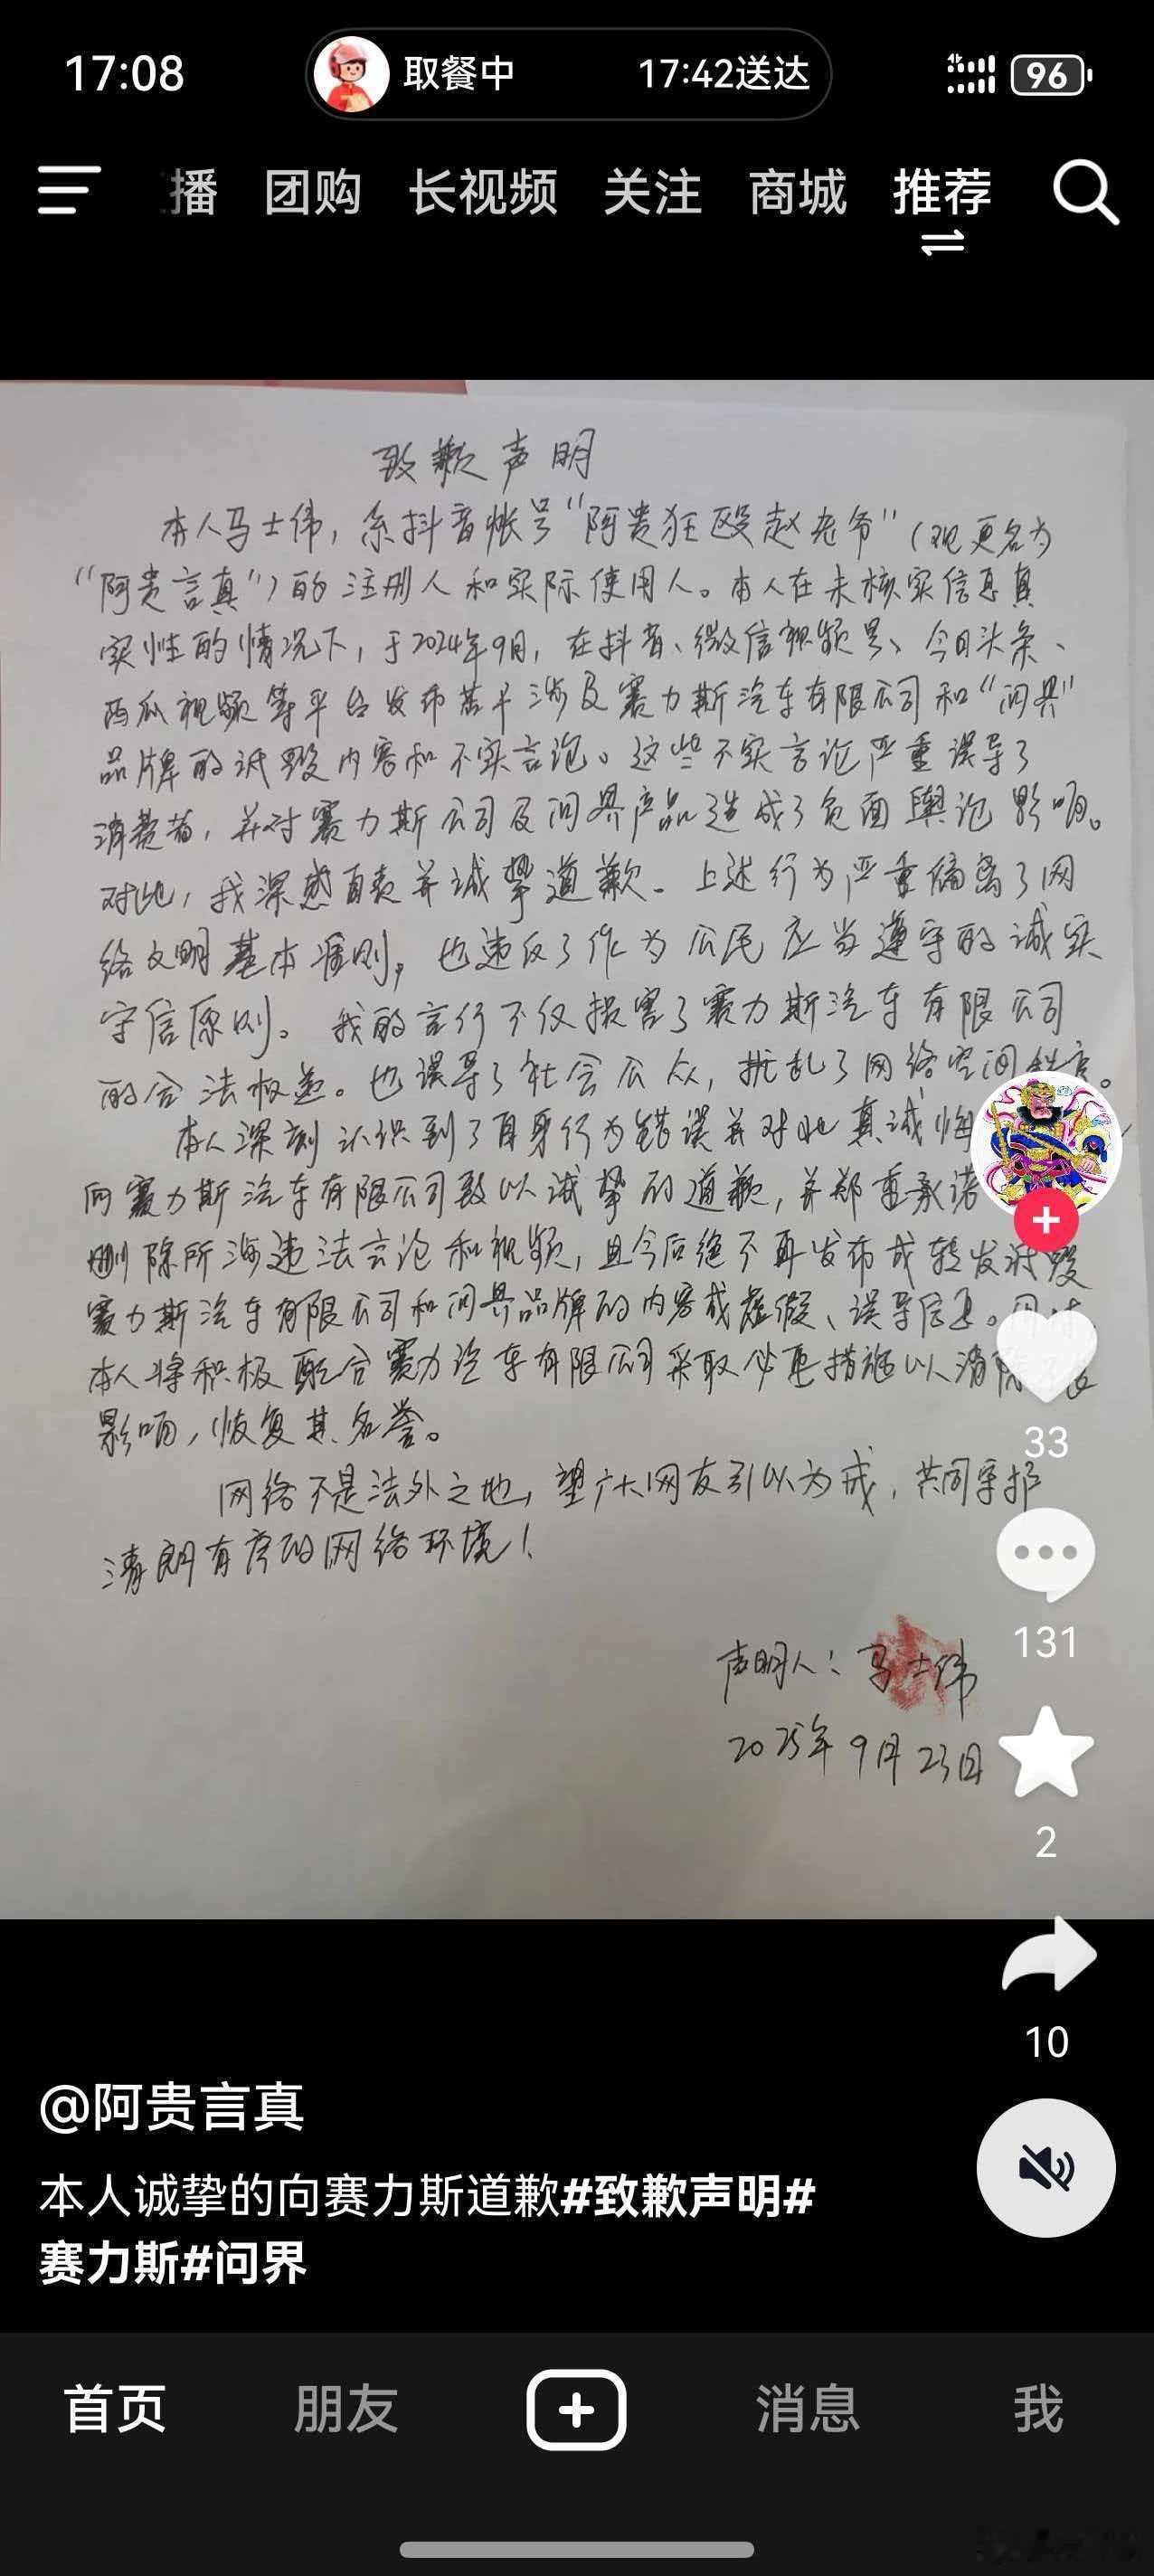 17:08
取餐中
17:42送达
96
播 团购 长视频 关注 商城 推荐
致歉声明
本人马士伟，系抖音账号“阿贵狂殴赵老爷”（现更名为
“阿贵言真”）的注册人和实际使用人。本人在未核实信息真
实性的情况下，于2024年9月，在抖音、微信视频号、今日头条、
西瓜视频等平台发布若干涉及赛力斯汽车有限公司和“问界”
品牌的诋毁内容和不实言论。这些不实言论严重误导了
消费者，并对赛力斯公司及问界产品造成了负面舆论影响。
对此，我深感自责并诚挚道歉。上述行为严重偏离了网
络文明基本准则，也违反了作为公民应当遵守的诚实
守信原则。我的言行不仅损害了赛力斯汽车有限公司
的合法权益。也误导了社会公众，扰乱了网络空间秩序。
本人深刻认识到了自身行为错误并对此真诚悔
向赛力斯汽车有限公司致以诚挚的道歉，并郑重承诺
删除所涉违法言论和视频，且今后绝不再发布或转发诋毁
赛力斯汽车有限公司和问界品牌的内容或虚假、误导信息。同时，
本人将积极配合赛力汽车有限公司采取必要措施以消除
影响，恢复其名誉。
网络不是法外之地，望广大网友引以为戒，共同守护
清朗有序的网络环境！
声明人：马士伟
2025年9月23日
33
131
2
10
@阿贵言真
本人诚挚的向赛力斯道歉#致歉声明#
赛力斯#问界
首页 朋友 消息 我